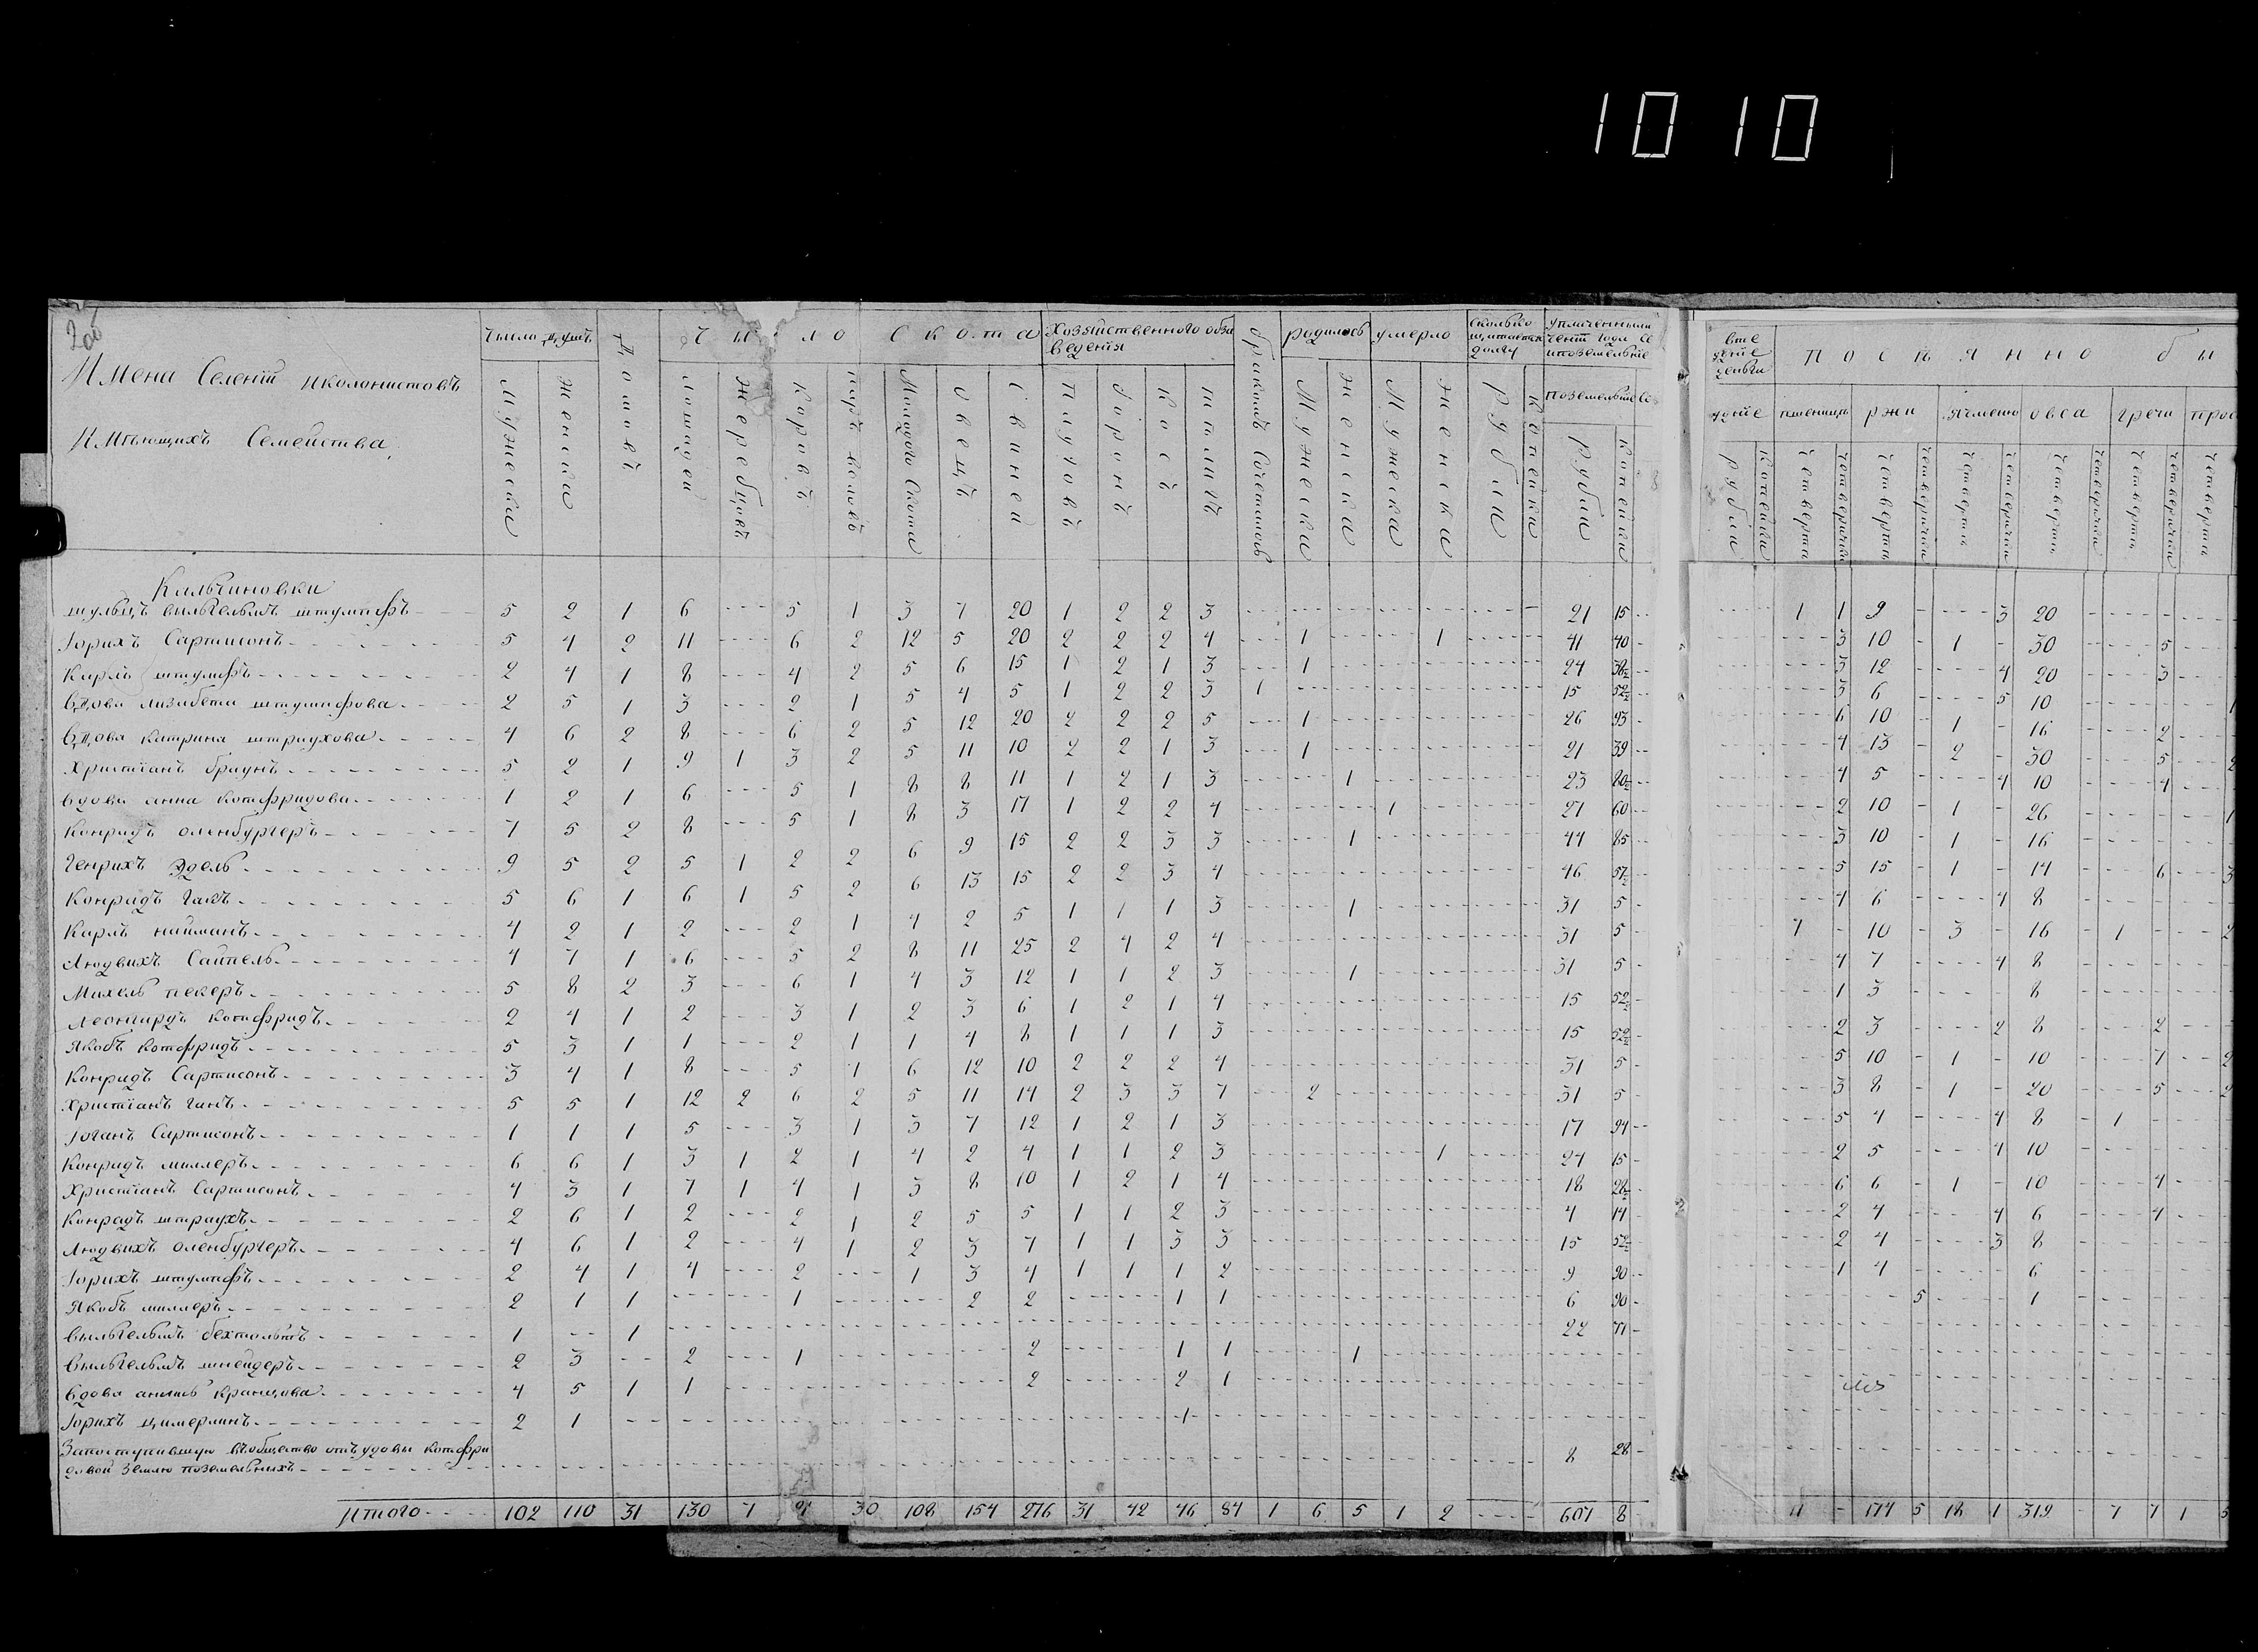 1010
200
Имена Селенiй иколонистовъ
Имѣющихъ Семейства.
Число душъ
Мужеска
женска
Домовъ
Число Скота
Лошадей
жеребцовъ
Коровъ
паръ воловъ
Молодого Скота
Овецъ
Свиней
Хозяйственного обза
ведения
плуговъ
боронъ
Косъ
бракомъ Сочеталось
родилось
Мужеска
женска
умерло
Мужеска
женска
долгу
рубли
Копейки
поземельные
рубли
Копейки
Посѣянно бы
рубли
Копейки
пшеницы
ржи
ячменю
овса
гречи
прос
четверти
четверички
Кильчиновки
шульцъ вильгельмъ штумпфъ 5 2 1 6 --- 5 1 3 7 20 1 2 2 3 21 15 1 1 9 3 20
Iорихъ Сартисонъ 5 4 2 11 --- 6 2 12 5 20 2 2 2 4 1 1 41 40 3 10 1 30 5
Карлъ штумпфъ 2 4 1 8 --- 4 2 5 6 15 1 2 1 3 1 24 38½ 3 12 4 20 3
Вдова лизабета штумпфова 2 5 1 3 --- 2 1 5 4 5 1 2 2 3 1 15 52½ 3 6 5 10 1
Вдова катрина штраухова 4 6 2 8 --- 6 2 5 12 20 2 2 2 5 1 26 93 6 10 1 16 2
Христiанъ браунъ 5 2 1 9 1 3 2 5 11 10 2 2 1 3 1 21 39 4 13 2 30 5 2
Вдова анна котфридова 1 2 1 6 --- 5 1 8 8 11 1 2 1 3 1 23 80½ 4 5 4 10 4
Конрадъ оленбургеръ 7 5 2 8 --- 5 1 8 3 17 1 2 2 4 1 27 60 2 10 1 26 1
Генрихъ Эдель 9 5 2 5 1 2 2 6 9 15 2 2 3 3 1 44 85 3 10 1 16
Конрадъ Гакъ 5 6 1 6 1 5 2 6 13 15 2 2 3 4 46 57½ 5 15 1 14 6 3
Карлъ найманъ 4 2 1 2 --- 2 1 4 2 5 1 1 1 3 1 31 5 4 6 4 8
Людвихъ Сайпель 4 7 1 6 --- 5 2 8 11 25 2 4 2 4 31 5 7 10 3 16 1 2
Михель пекеръ 5 8 2 3 --- 6 1 4 3 12 1 1 2 3 1 31 5 4 7 4 8
Леонгардъ Котфридъ 2 4 1 2 --- 3 1 2 3 6 1 2 1 4 15 52½ 1 3 8
Якобъ котфридъ 5 3 1 1 --- 2 1 1 4 8 1 1 1 3 15 52½ 2 3 2 8 2
Конрадъ Сартисонъ 3 4 1 8 --- 5 1 6 12 10 2 2 2 4 31 5 5 10 1 10 7 2
Христiанъ Ганъ 5 5 1 12 2 6 2 5 11 14 2 3 3 7 2 31 5 3 8 1 20 5 2
Iоганъ Сартисонъ 1 1 1 5 --- 3 1 3 7 12 1 2 1 3 17 94 5 4 4 8 1
Конрадъ миллеръ 6 6 1 3 1 2 1 4 2 4 1 1 2 3 1 24 15 2 5 4 10
Христiанъ Сартисонъ 4 3 1 7 1 4 1 3 8 10 1 2 1 4 18 28½ 6 6 1 10 4
Конрадъ штраухъ 2 6 1 2 --- 2 1 2 5 5 1 1 2 3 4 14 2 4 4 6 4
Людвихъ оленбургеръ 4 6 1 2 --- 4 1 2 3 7 1 1 3 3 15 52½ 2 4 3 8
Iорихъ штумпфъ 2 4 1 4 --- 2 --- 1 3 4 1 1 1 2 9 90 1 4 6
Якобъ миллеръ 2 1 1 --- 1 --- 2 2 --- 1 1 6 90 5 1
вильгельмъ бехтольтъ 1 --- 1 --- 22 71
Вильгельмъ шнейдеръ 2 3 -- 2 --- 1 --- 2 --- 1 1 1
Вдова Кранцова 4 5 1 1 --- 2 --- 2 1
Iорихъ цимерлинъ 2 1 --- 1
Запоступившую въобщество отъ удовы котфри
довой землю поземельныхъ --- 8 28
Итого 102 110 31 130 7 30 108 154 276 31 42 46 84 1 6 5 1 2 --- 607 8 11 174 5 18 1 319 7 7 1 5